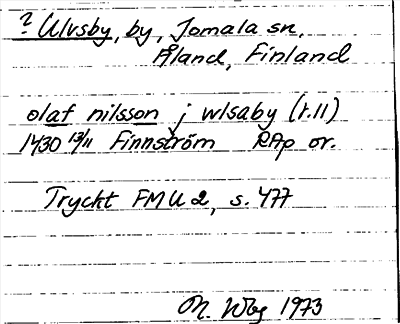 ? Ulvsby, by, Jomala sn,
Åland, Finland
olaf nilsson j wlsaby (t.11)
1430 13/11 Finnström RAp or.
Tryckt FMU 2, s. 477
M. Wbg 1973